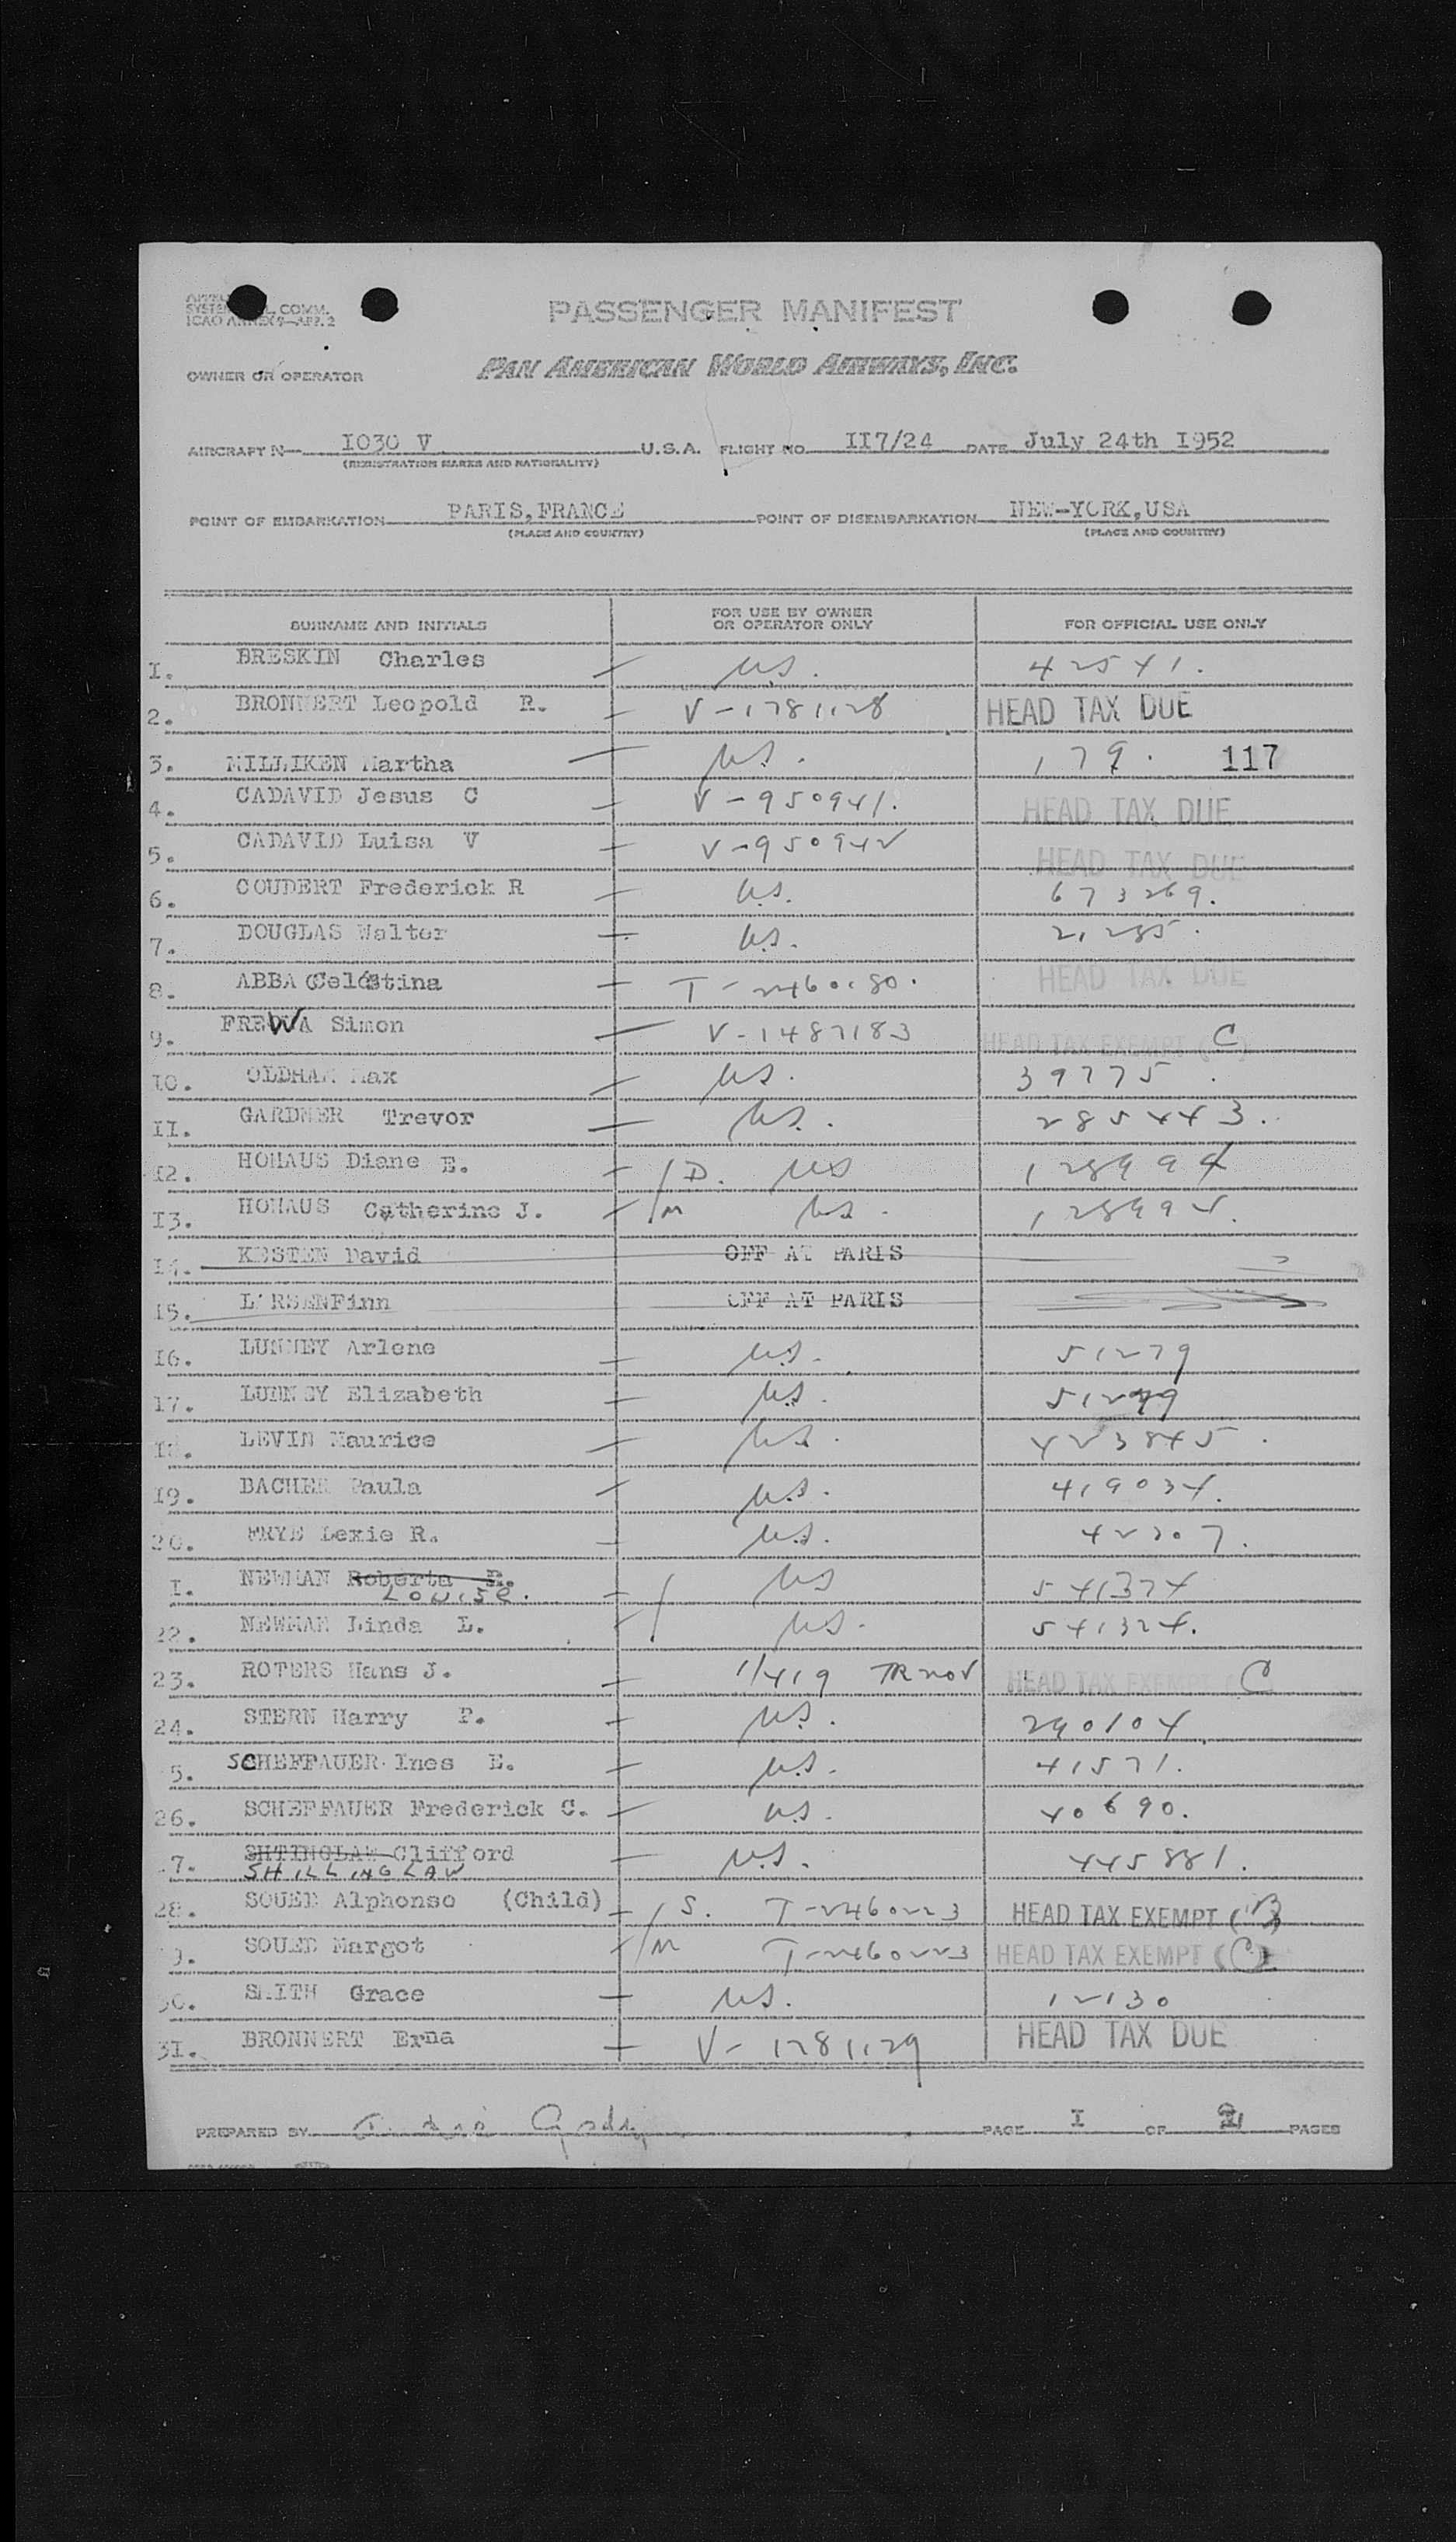 SYSTEM COMM.
ICAO ANNEX 9—APP. 2
PASSENGER MANIFEST
OWNER OR OPERATOR
PAN AMERICAN WORLD AIRWAYS, INC.
AIRCRAFT N— I030 V U.S.A. FLIGHT NO. II7/24 DATE July 24th I952
(REGISTRATION MARKS AND NATIONALITY)
POINT OF EMBARKATION PARIS,FRANCE POINT OF DISEMBARKATION NEW-YORK,USA
(PLACE AND COUNTRY) (PLACE AND COUNTRY)
SURNAME AND INITIALS FOR USE BY OWNER OR OPERATOR ONLY FOR OFFICIAL USE ONLY
I. BRESKIN Charles — U.S. 42541.
2. BRONNERT Leopold R. — V-1781128 HEAD TAX DUE
3. MILLIKEN Martha — U.S. 179. 117
4. CADAVID Jesus C — V-950941. HEAD TAX DUE
5. CADAVID Luisa V — V-950942 HEAD TAX DUE
6. COUDERT Frederick R — U.S. 673269.
7. DOUGLAS Walter — U.S. 21285.
8. ABBA Celestina — T-2460180. HEAD TAX DUE
9. FREWA Simon — V-1487183 HEAD TAX EXEMPT (C)
I0. OLDHAM Max — US. 39775.
II. GARDNER Trevor — US. 285443.
I2. HOMAUS Diane E. — D. US 128994
I3. HOMAUS Catherine J. — M US. 128995.
I4. KESTEN David OFF AT PARIS
I5. L'RSENFinn OFF AT PARIS
I6. LUNNEY Arlene — U.S. 51279
I7. LUNNEY Elizabeth — U.S. 51279
I8. LEVIN Maurice — US. 423845.
I9. BACHER Paula — U.S. 419034.
20. FRYE Lexie R. — U.S. 42307.
I. NEWMAN Roberta R. — US 541324
Louise.
22. NEWMAN Linda L. — US. 541324.
23. ROTERS Hans J. — 1/419 TR nov HEAD TAX EXEMPT (C
24. STERN Harry P. — U.S. 290104
5. SCHEFFAUER Ines E. — U.S. 41571.
26. SCHEFFAUER Frederick C. — U.S. 40690.
7. SHTINGLAW Clifford — U.S. 445881.
SHILLINGLAW
28. SOUED Alphonso (Child) — S. T-2460223 HEAD TAX EXEMPT (B)
9. SOUED Margot — M T-2460223 HEAD TAX EXEMPT (C)
30. SMITH Grace — US. 12130
3I. BRONNERT Erna — V-1781129 HEAD TAX DUE
PREPARED BY PAGE I OF 2 PAGES